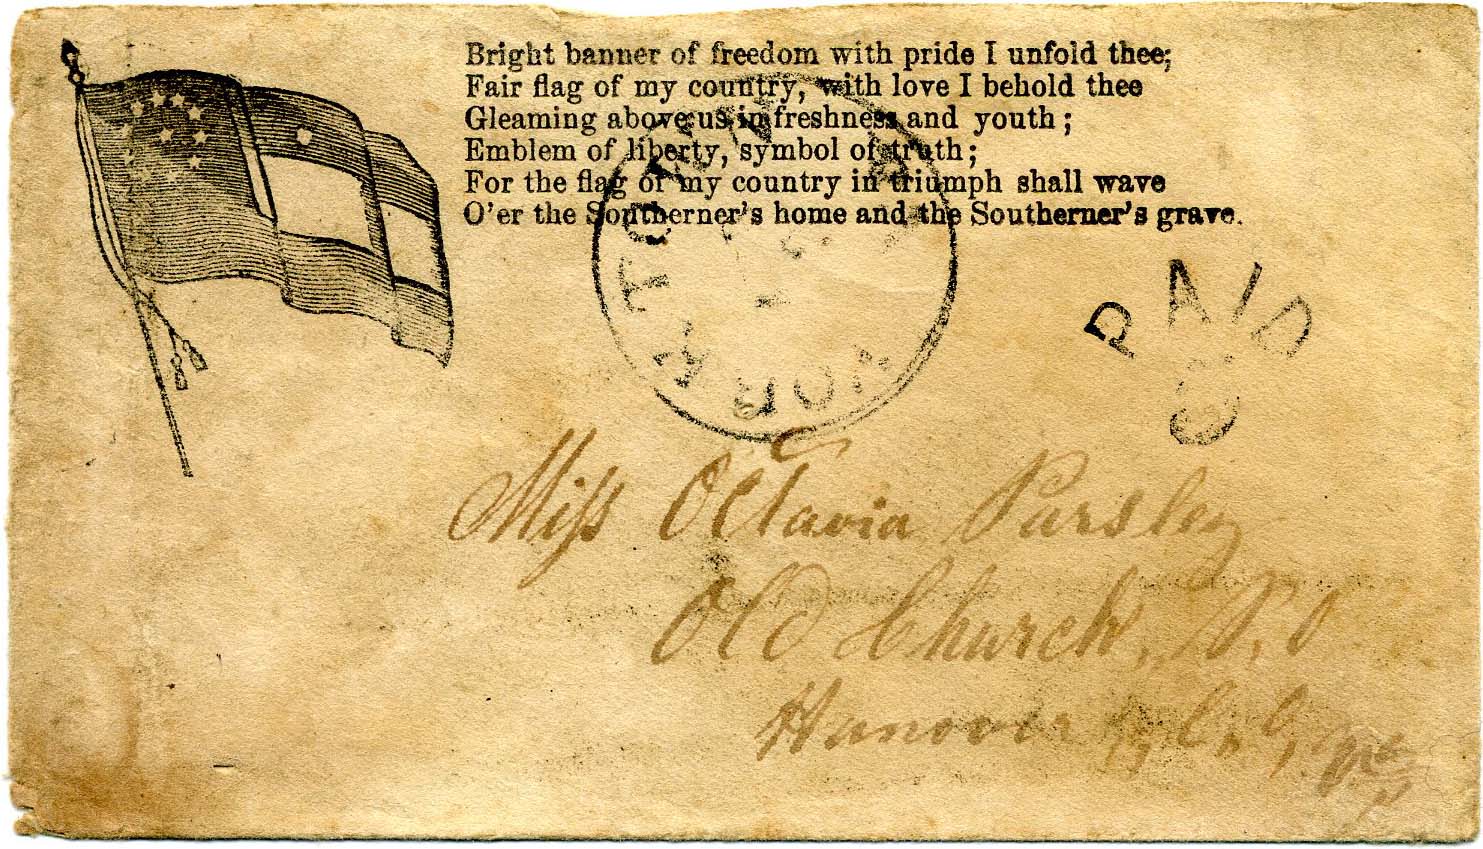 Bright banner of freedom with pride I unfold thee;
Fair flag of my country, with love I behold thee
Gleaming above us in freshness and youth;
Emblem of liberty, symbol of truth;
For the flag of my country in triumph shall wave
O'er the Southerner's home and the Southerner's grave.
YORKTOWN
PAID
Miss Octavia Parsley
Old Church, P.O
Hanover